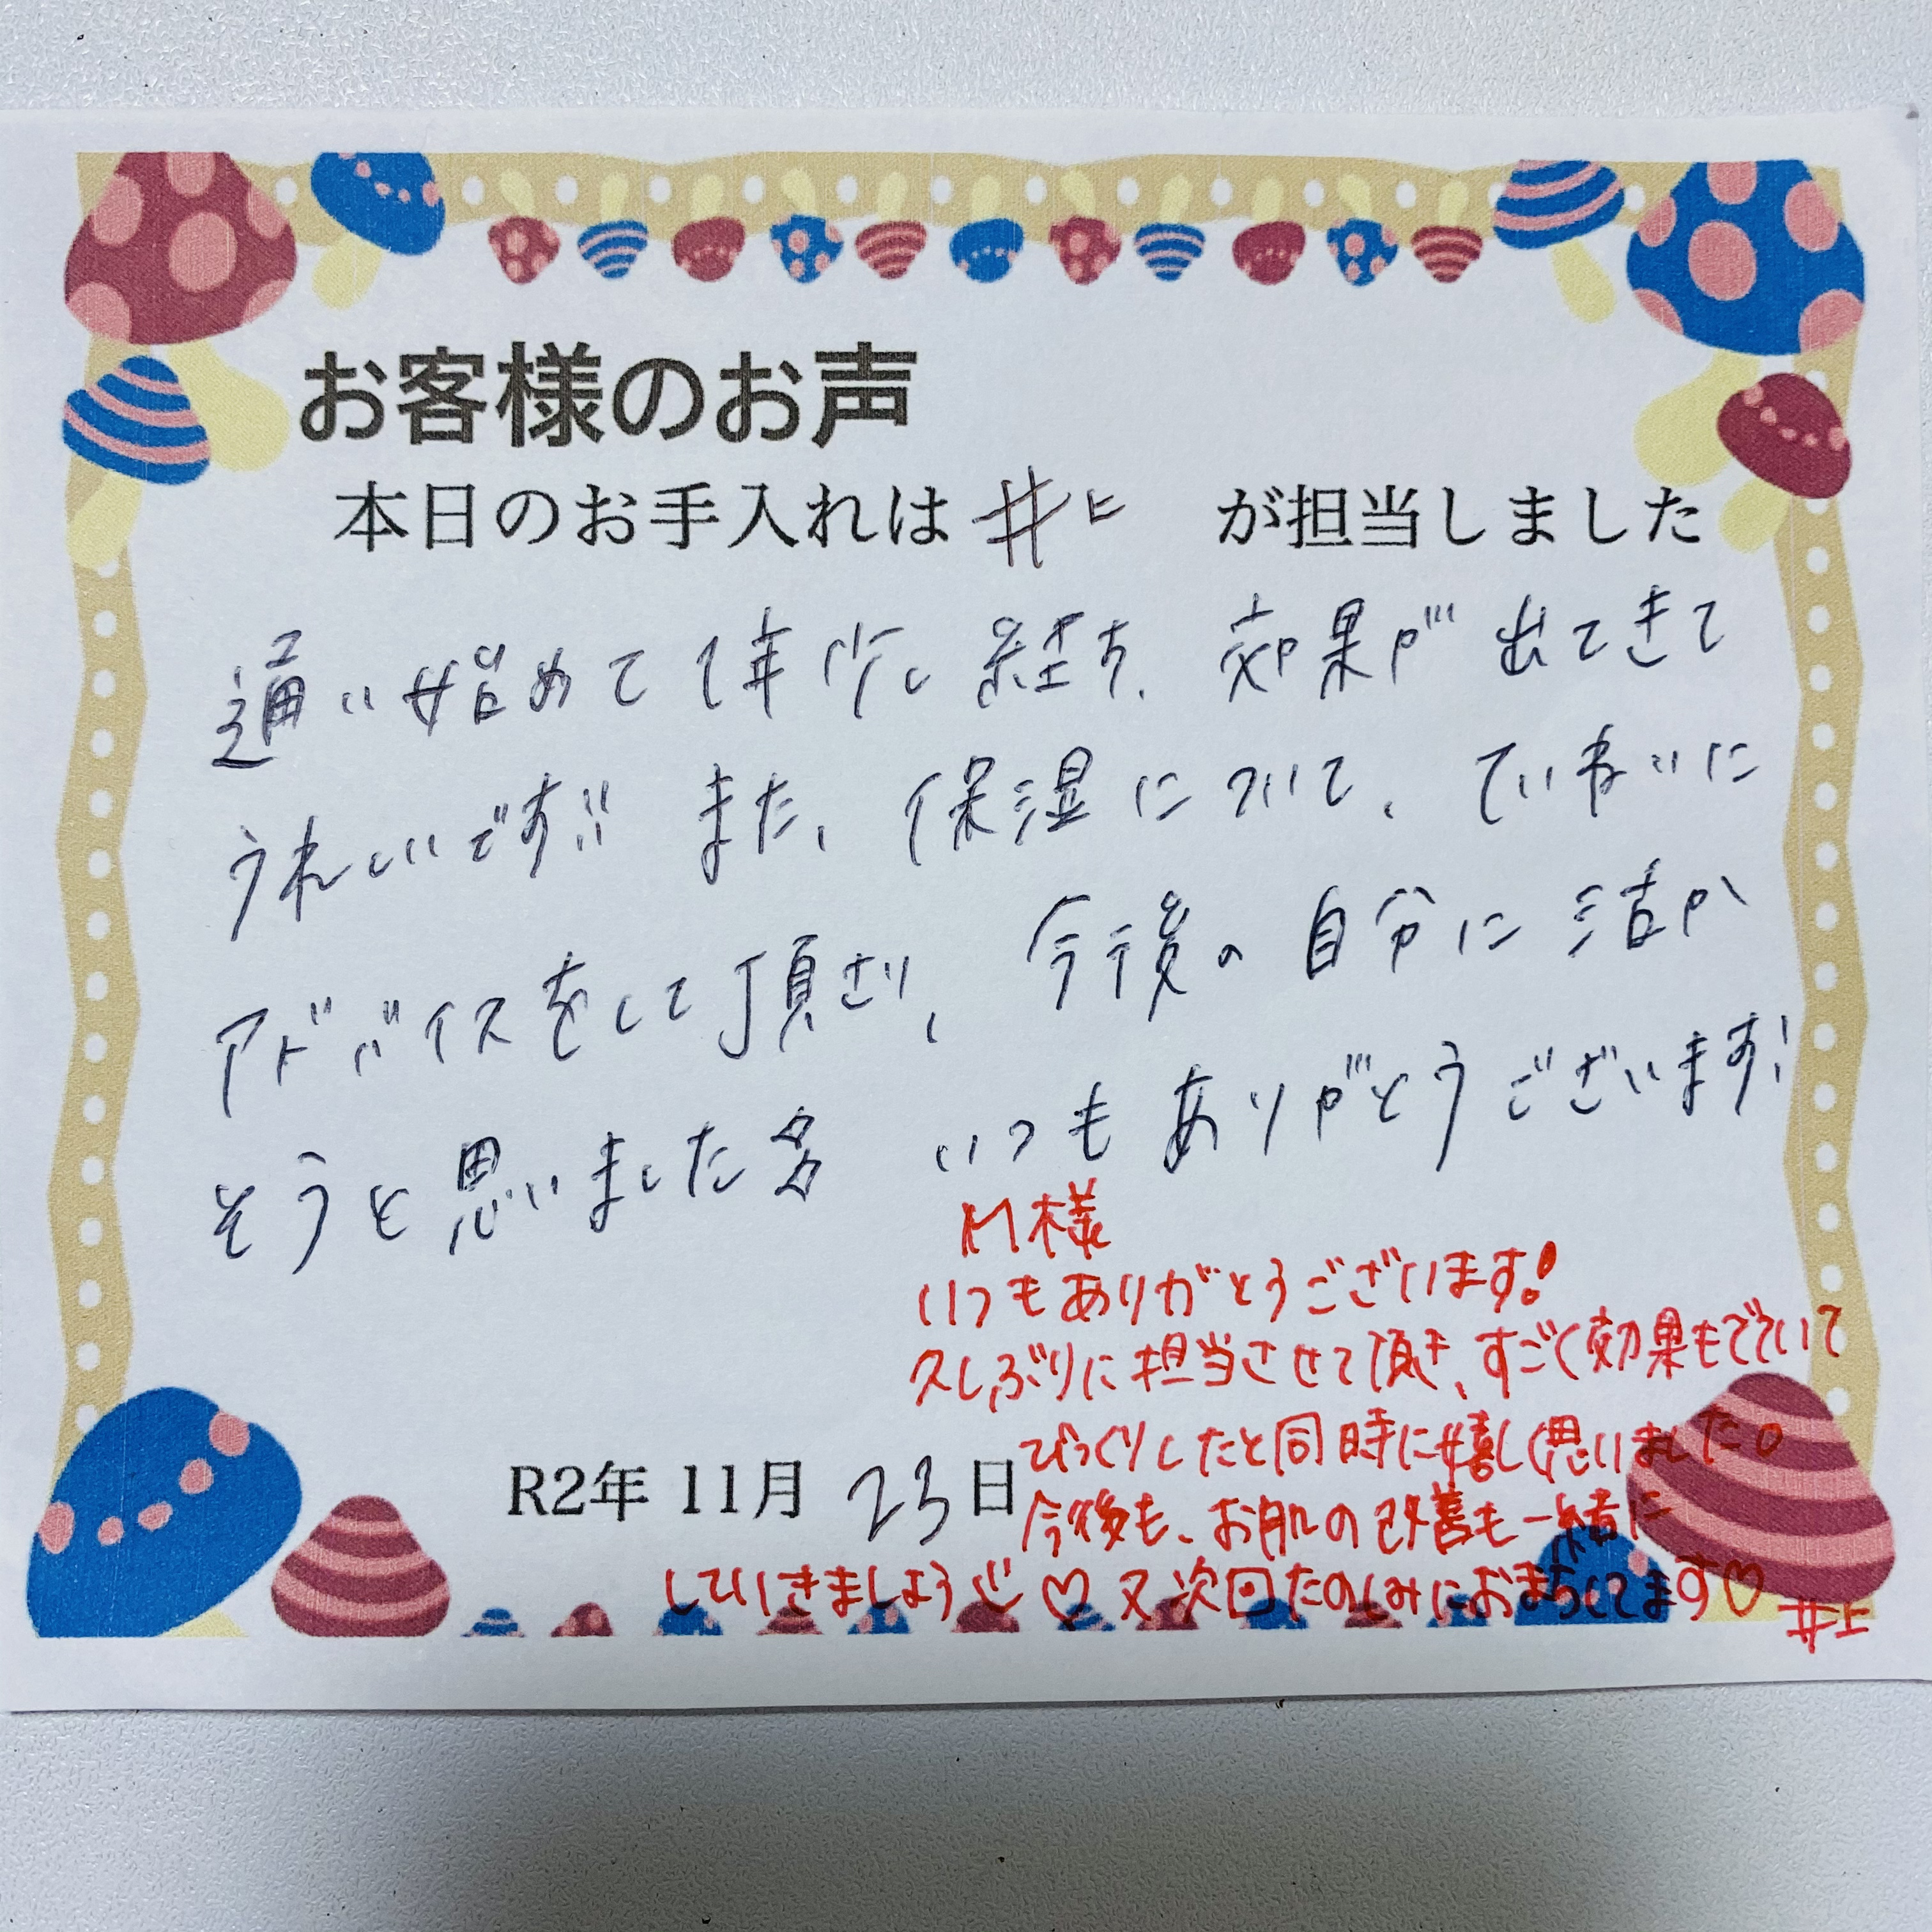 お客様のお声
本日のお手入れは 井上 が担当しました
通い始めて1年少し経ち、効果が出てきて
うれしいです!! また、保湿について、ていねいに
アドバイスをして頂き、今後の自分に活か
そうと思いました いつもありがとうございます!
M様
いつもありがとうございます!
久しぶりに担当させて頂き、すごく効果もでていて
びっくりしたと同時に嬉しく思いました。
R2年 11月 23日
今後も、お肌の改善も一緒に
していきましょう♡又次回たのしみにおまちしてます♡
井上